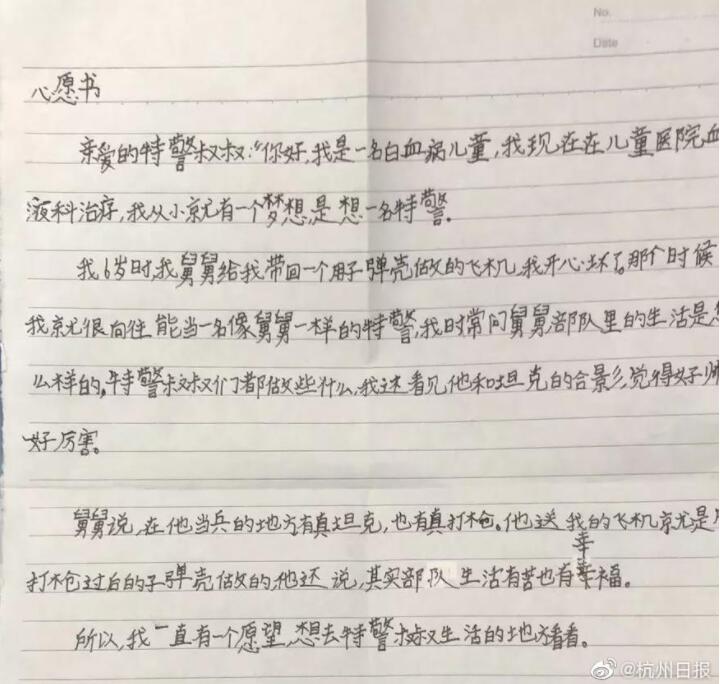 No.
Date
心愿书
亲爱的特警叔叔:“你好,我是一名白血病儿童,我现在在儿童医院血
液科治疗,我从小就有一个梦想,是想一名特警.
我6岁时,我舅舅给我带回一个用子弹壳做的飞机,我开心坏了。那个时候
我就很向往能当一名像舅舅一样的特警,我时常问舅舅部队里的生活是怎
么样的,特警叔叔们都做些什么,我还看见他和坦克的合影,觉得好帅
好厉害。
舅舅说,在他当兵的地方有真坦克,也有真打枪。他送我的飞机就是用
打枪过后的子弹壳做的,他还说,其实部队生活有苦也有幸福。
幸
所以,我一直有一个愿望,想去特警叔叔生活的地方看看。
@杭州日报